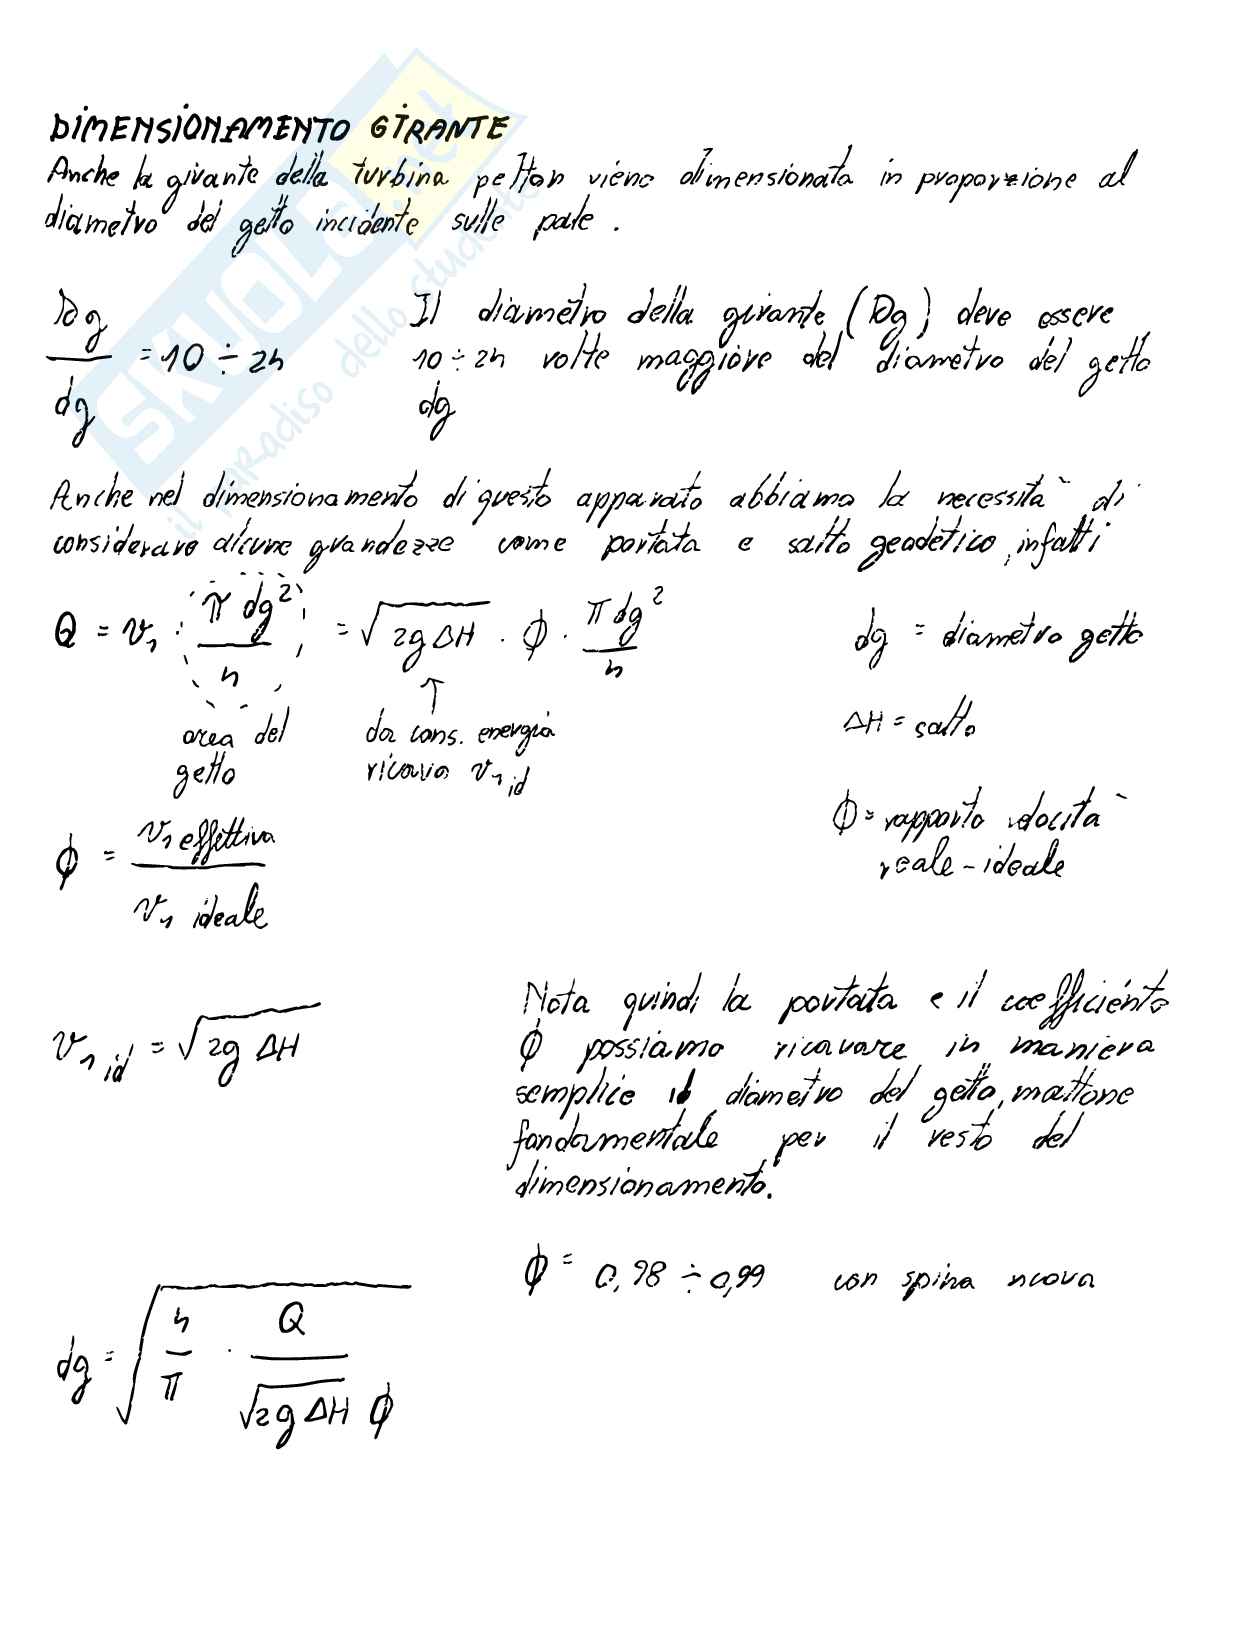 DIMENSIONAMENTO GIRANTE
Anche la girante della turbina pelton viene dimensionata in proporzione al
diametro del getto incidente sulle pale.
Dg / dg = 10 ÷ 24
Il diametro della girante (Dg) deve essere
10 ÷ 24 volte maggiore del diametro del getto
dg
Anche nel dimensionamento di questo apparato abbiamo la necessità di
considerare alcune grandezze come portata e salto geodetico, infatti
Q = v₁ · π dg² / 4 = √(2g ΔH) · ϕ · π dg² / 4
dg = diametro getto
area del
getto
da cons. energia
ricavo v₁ id
ΔH = salto
ϕ = rapporto velocità
reale - ideale
ϕ = v₁ effettiva / v₁ ideale
v₁ id = √(2g ΔH)
Nota quindi la portata e il coefficiente
ϕ possiamo ricavare in maniera
semplice il diametro del getto, mattone
fondamentale per il resto del
dimensionamento.
ϕ = 0,98 ÷ 0,99 con spina nuova
dg = √(4/π · Q / (√(2g ΔH) ϕ))
SKUOLA.net
il paradiso dello studente